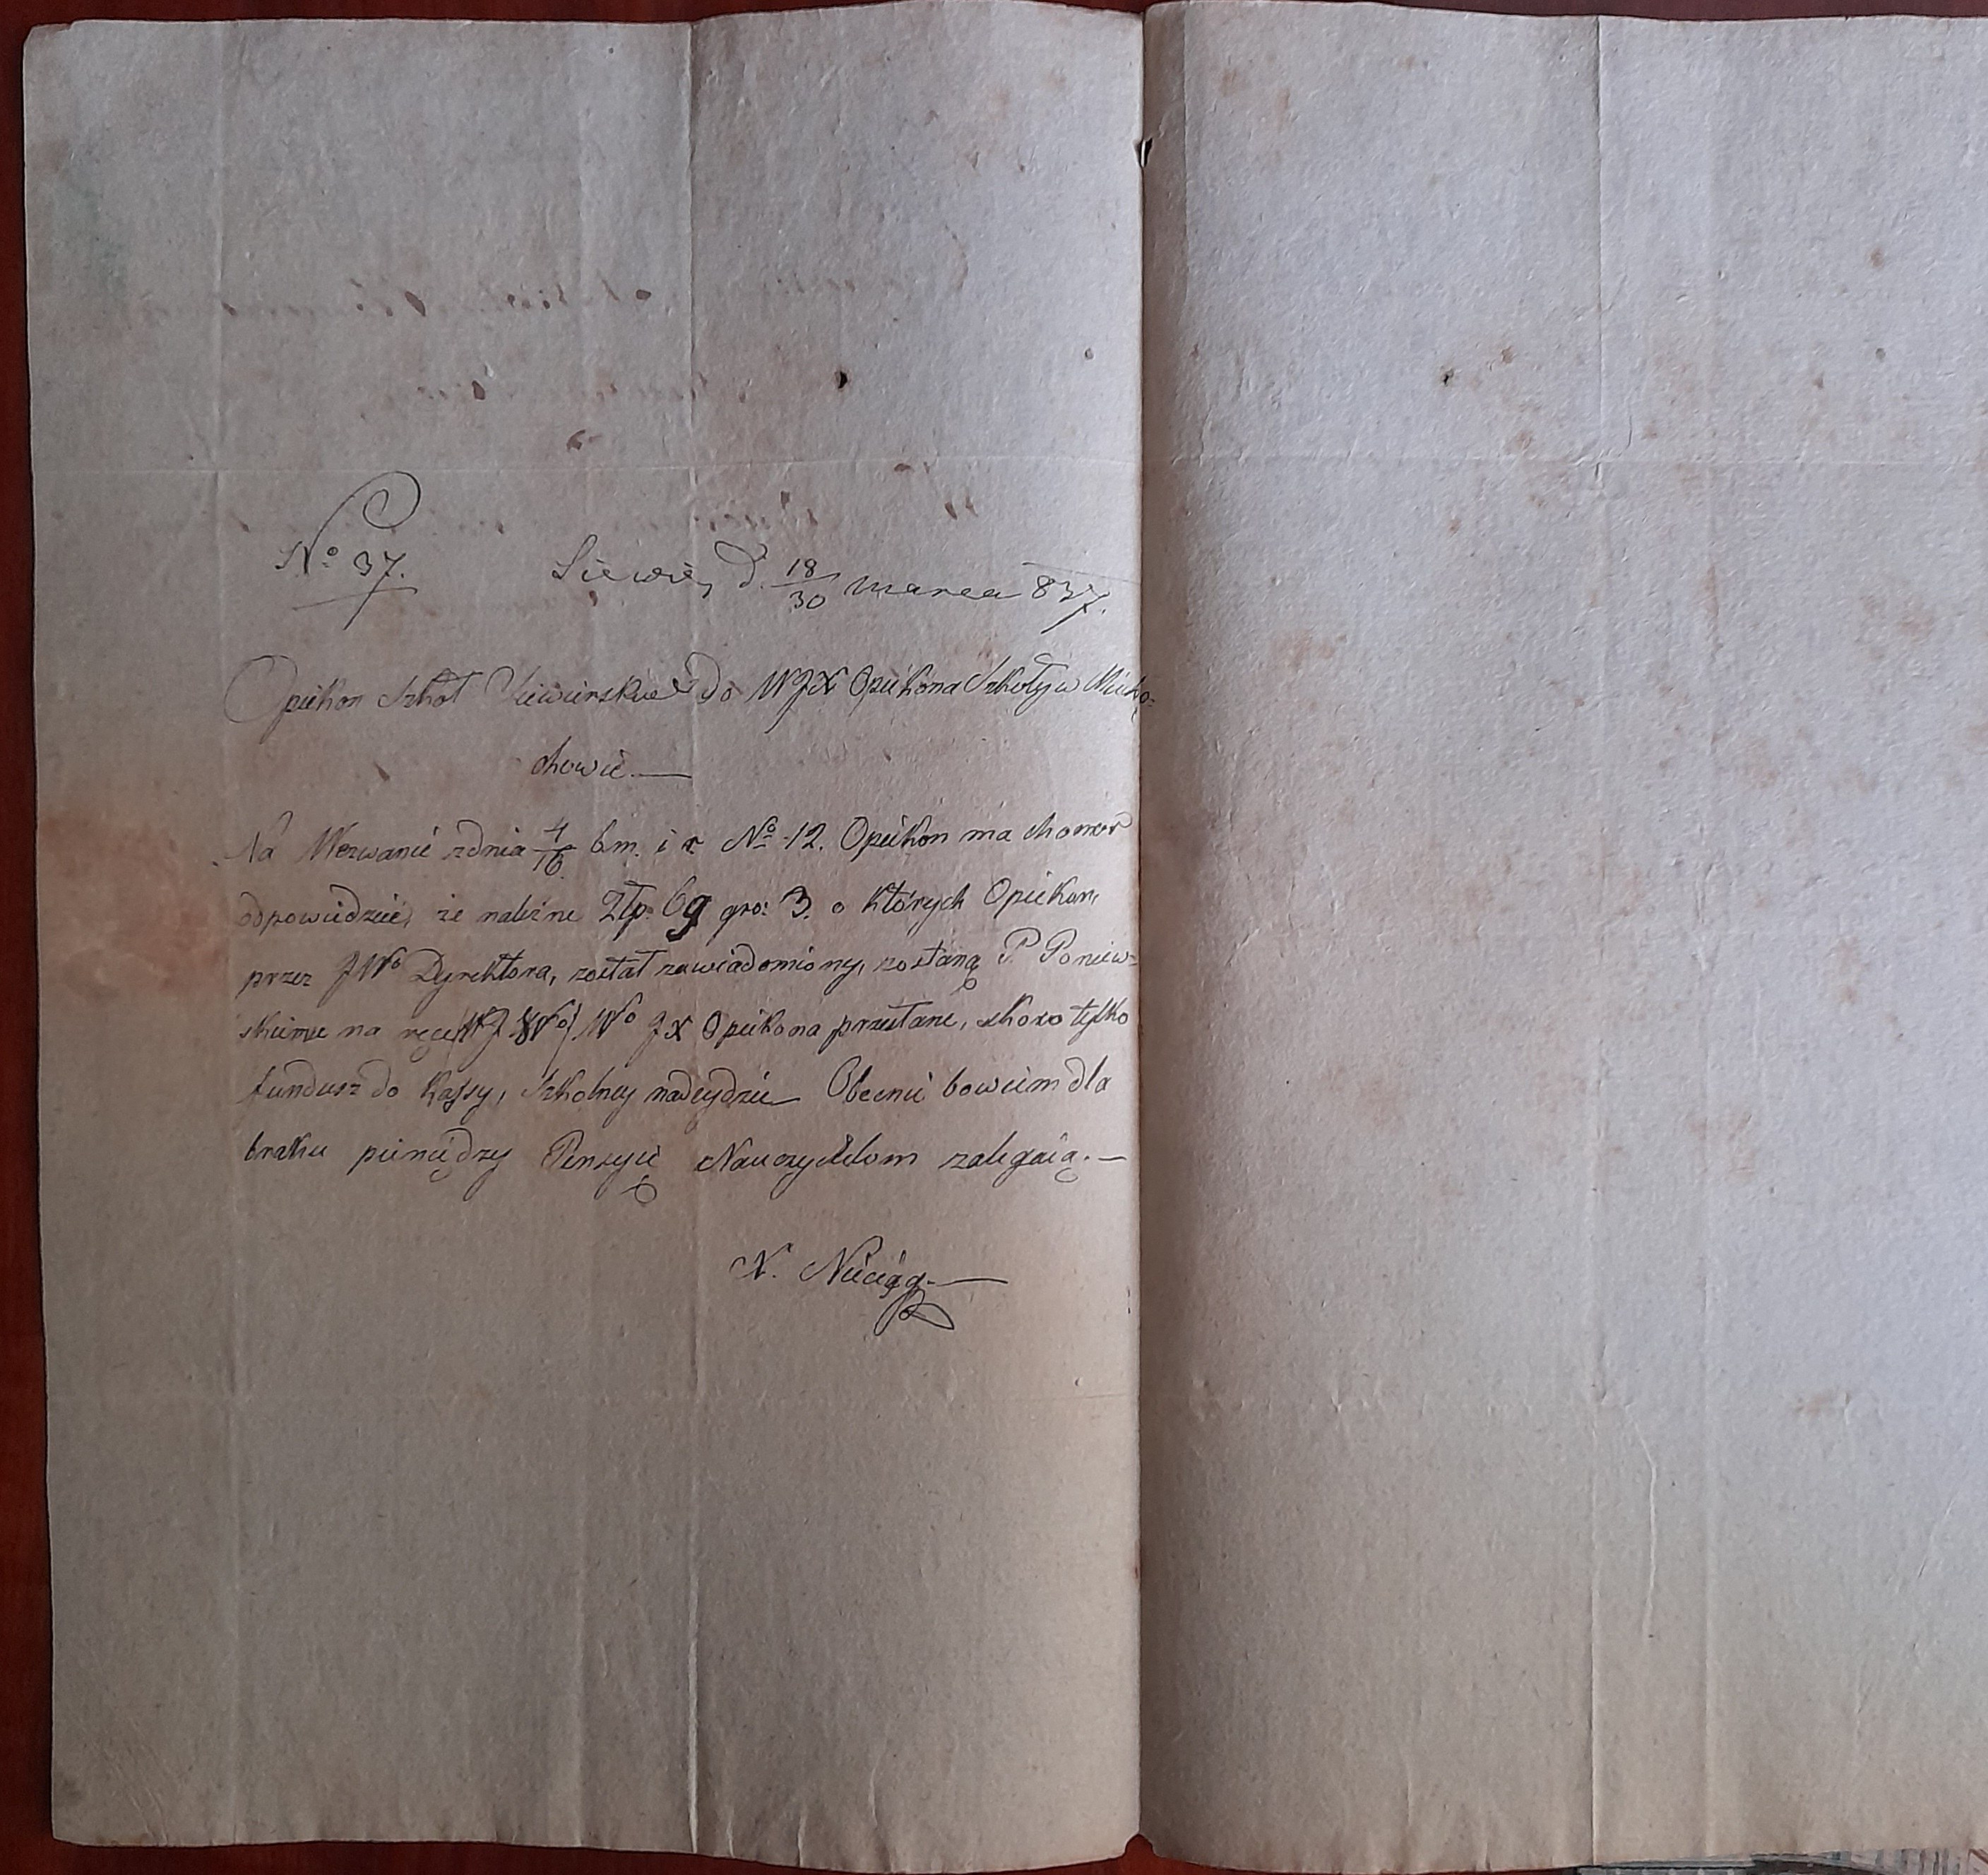 No 37.
Siewierz, d. 18/30 marca 837.
Opiekun Szkół Siewierskich do WJX Opiekuna Szkoły w Mie-
chowie.—
Na Wezwanie z dnia 4/16 b.m. i r. No 12. Opiekun ma chonor
odpowiedzieć, że należne Złp. 69 gro: 3. o których Opiekun,
przez JWo Dyrektora, został zawiadomiony, zostaną P.
skiemu na ręce Wo JX Opiekuna przesłane, skoro tylko
fundusz do Kassy, Szkolney nadeydzie Obecnie bowiem dla
braku pieniędzy Pensyie Nauczycielom zalegaią.—
X. Nieciąg